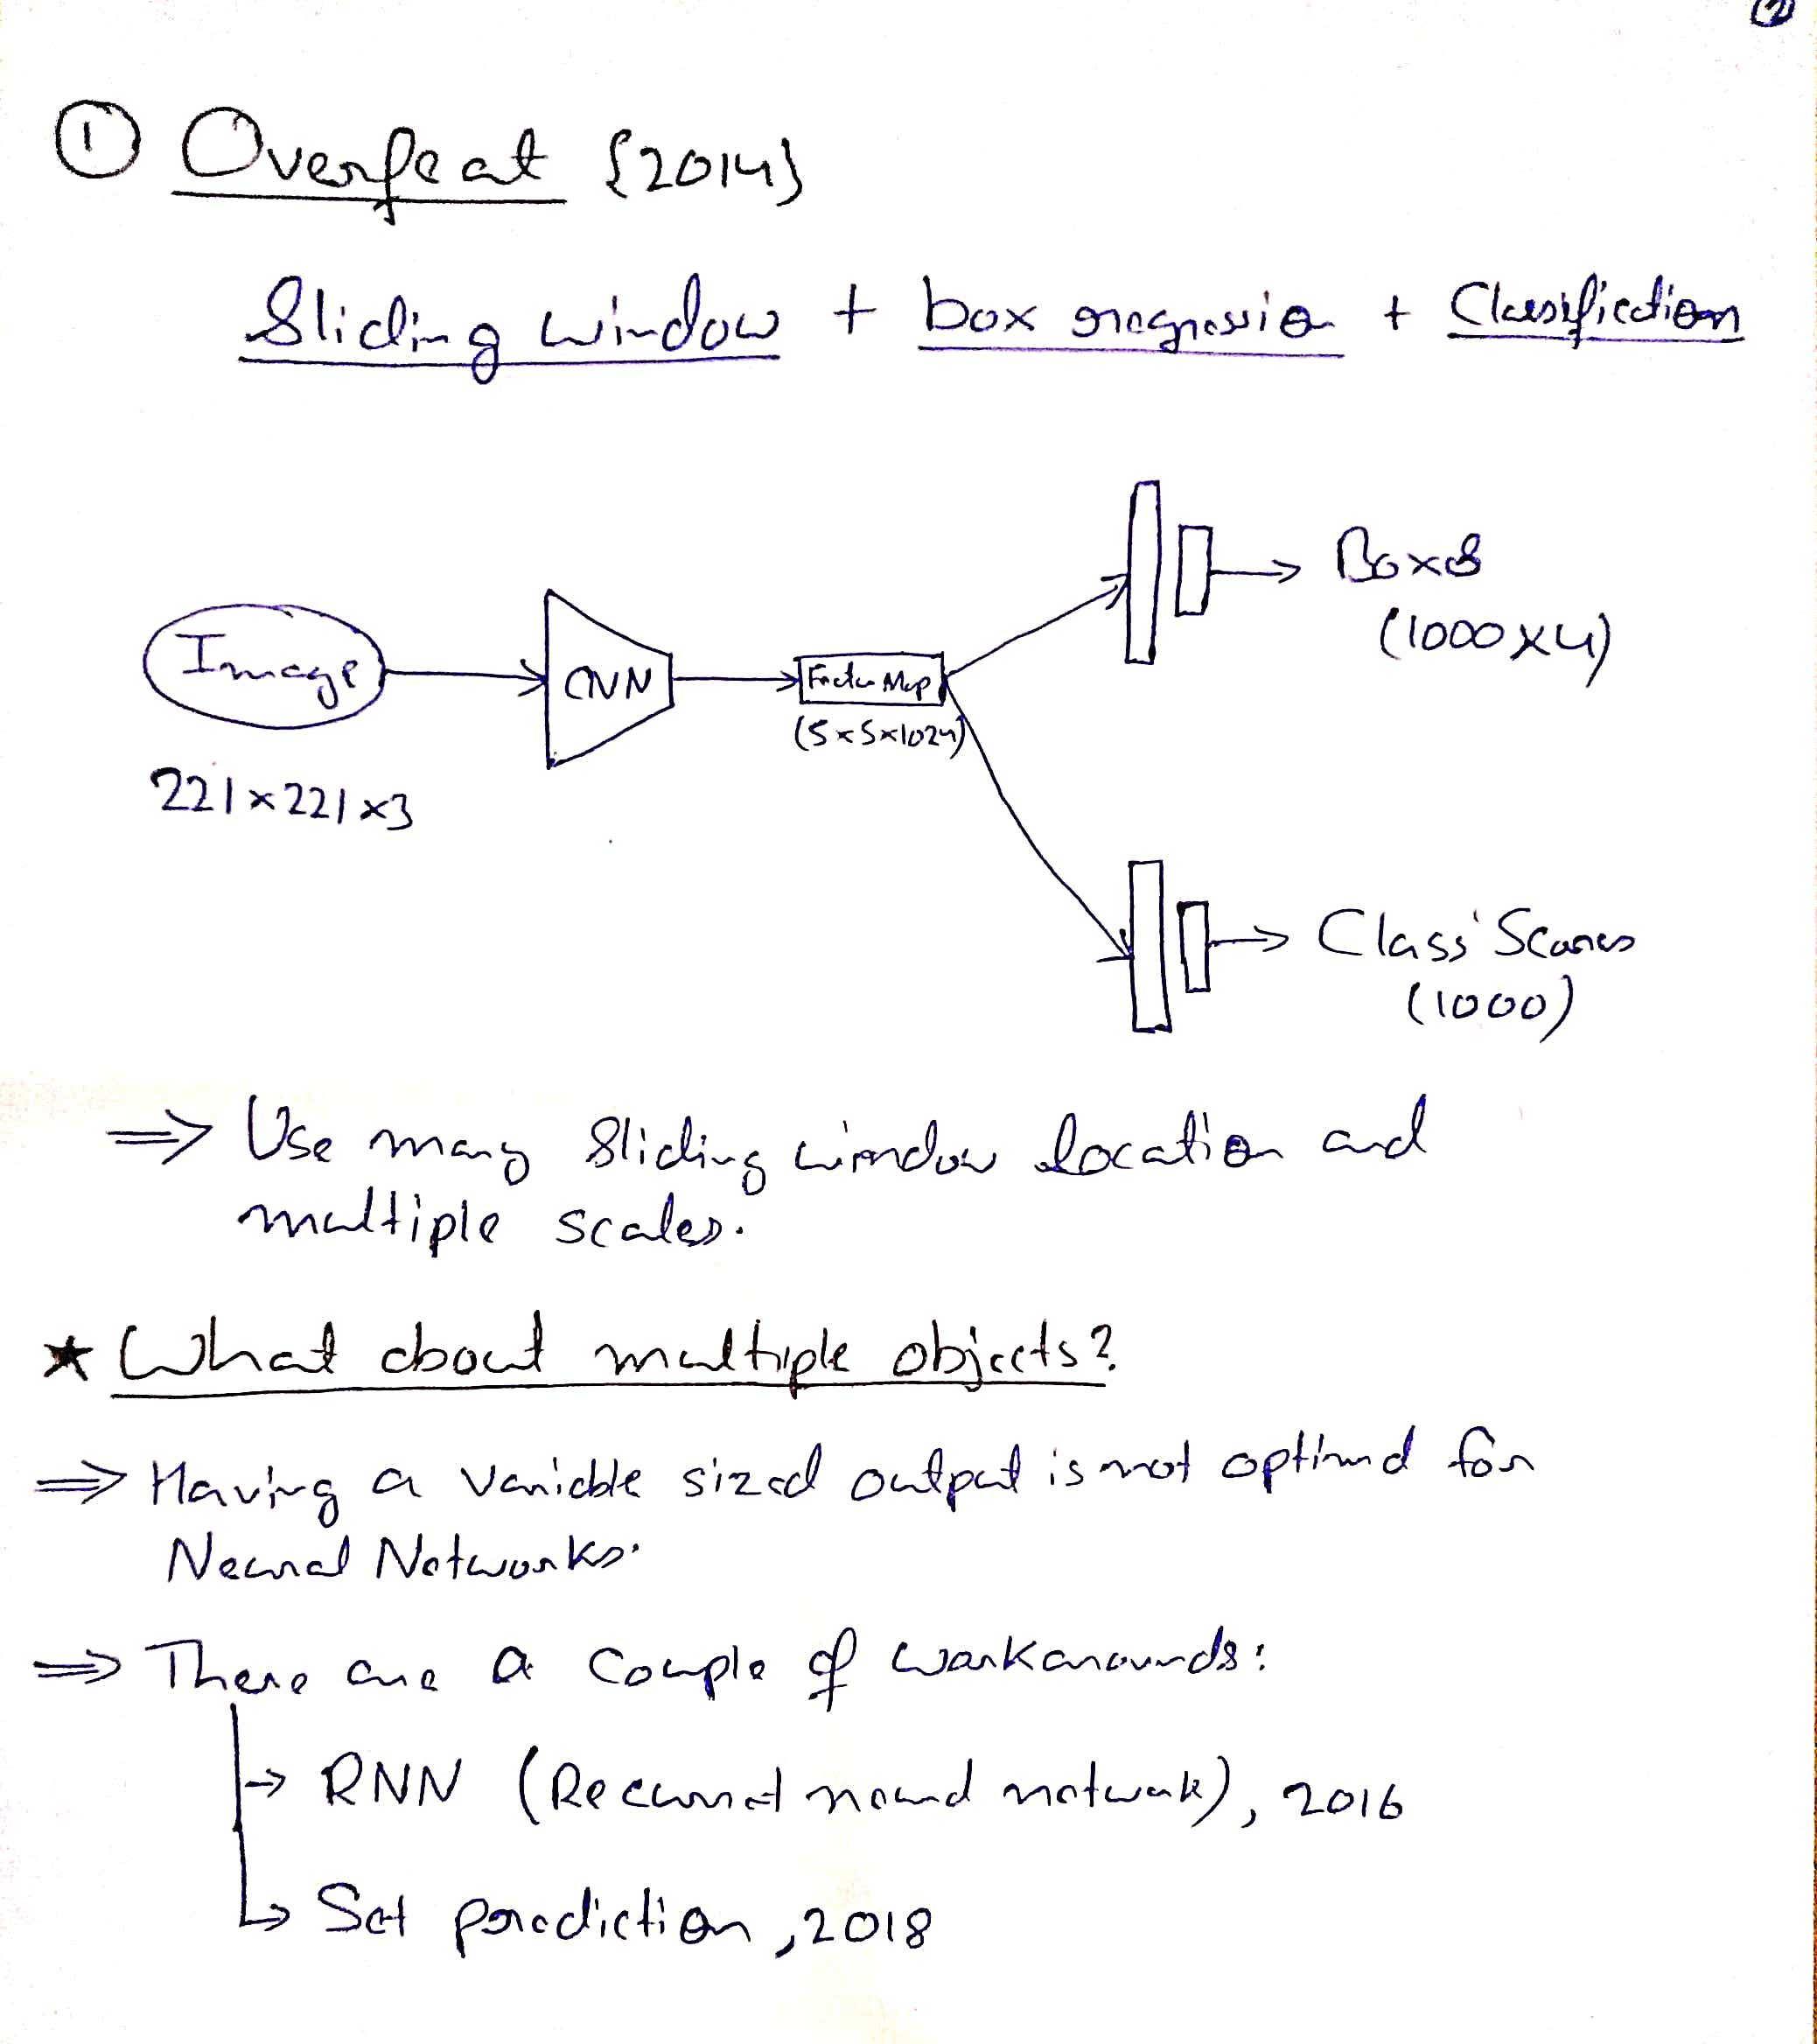 2
① Overfeat {2014}
Sliding window + box regression + Classifiction
Boxes
(1000x4)
Image
CNN
Feature Map
(5x5x1024)
221x221x3
Class Scores
(1000)
=> Use many Sliding window location and
multiple scales.
★ What about multiple objects?
=> Having a variable sized output is not optimal for
Neural Networks.
=> There are a couple of workarounds:
→ RNN (Recurrent neural network), 2016
→ Set prediction, 2018